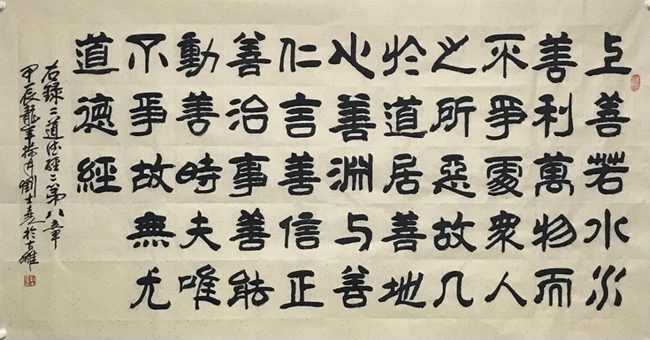 上善若水水
善利萬物而
不爭處眾人
之所惡故几
於道居善地
心善淵与善
仁言善信正
善治事善能
動善時夫唯
不爭故無尤
道德經
右錄道德經第八章
甲辰龍年月劉士於古